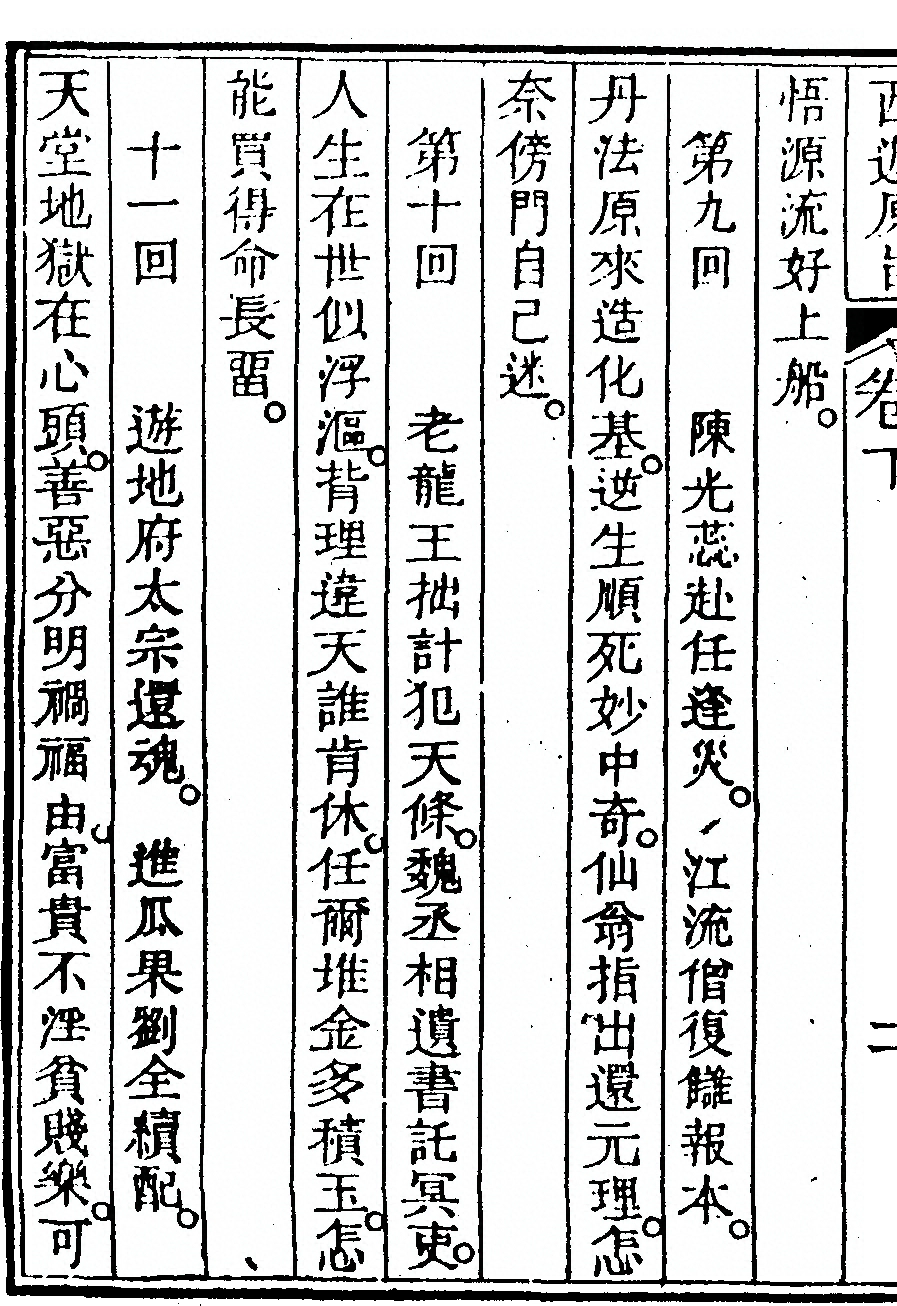 西遊原旨 卷下 二
悟源流好上船。
第九回 陳光蕊赴任逢災。 江流僧復讎報本。
丹法原來造化基。逆生順死妙中奇。仙翁指出還元理。怎
奈傍門自己迷。
第十回 老龍王拙計犯天條。魏丞相遺書託冥吏。
人生在世似浮漚。背理違天誰肯休。任爾堆金多積玉。怎
能買得命長畱。
十一回 遊地府太宗還魂。 進瓜果劉全續配。
天堂地獄在心頭。善惡分明禍福由。富貴不淫貧賤樂。可